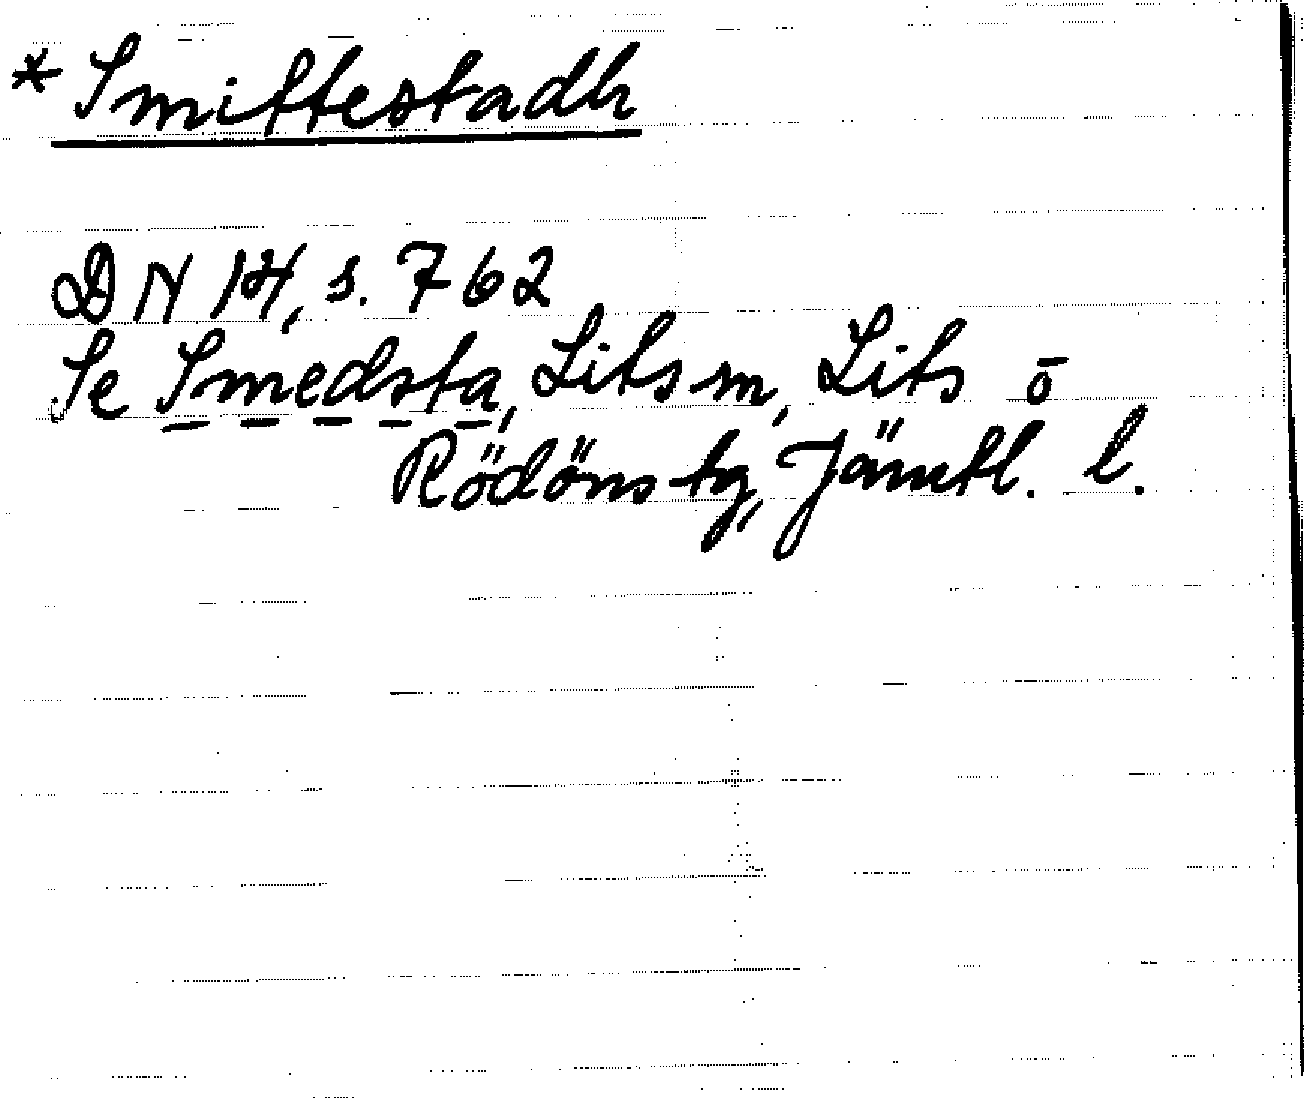 * Smittestadh
DN 14, s. 762
Se Smedsta, Lits sn, Lits o
Rödöns tg, Jämtl. l.